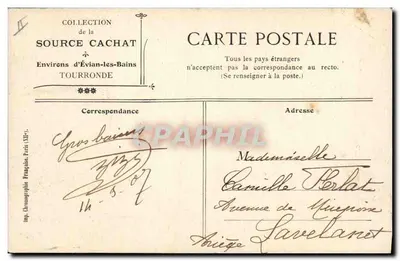 COLLECTION
de la
SOURCE CACHAT
Environs d'Évian-les-Bains
TOURRONDE
CARTE POSTALE
Tous les pays étrangers
n'acceptent pas la correspondance au recto.
(Se renseigner à la poste.)
Correspondance
Adresse
Gros baisers
14-8-07
Mademoiselle
Camille Perlat
Avenue de Mirepoix
Lavelanet
Ariège
Imp. Chromographie Française, Paris (XIe).